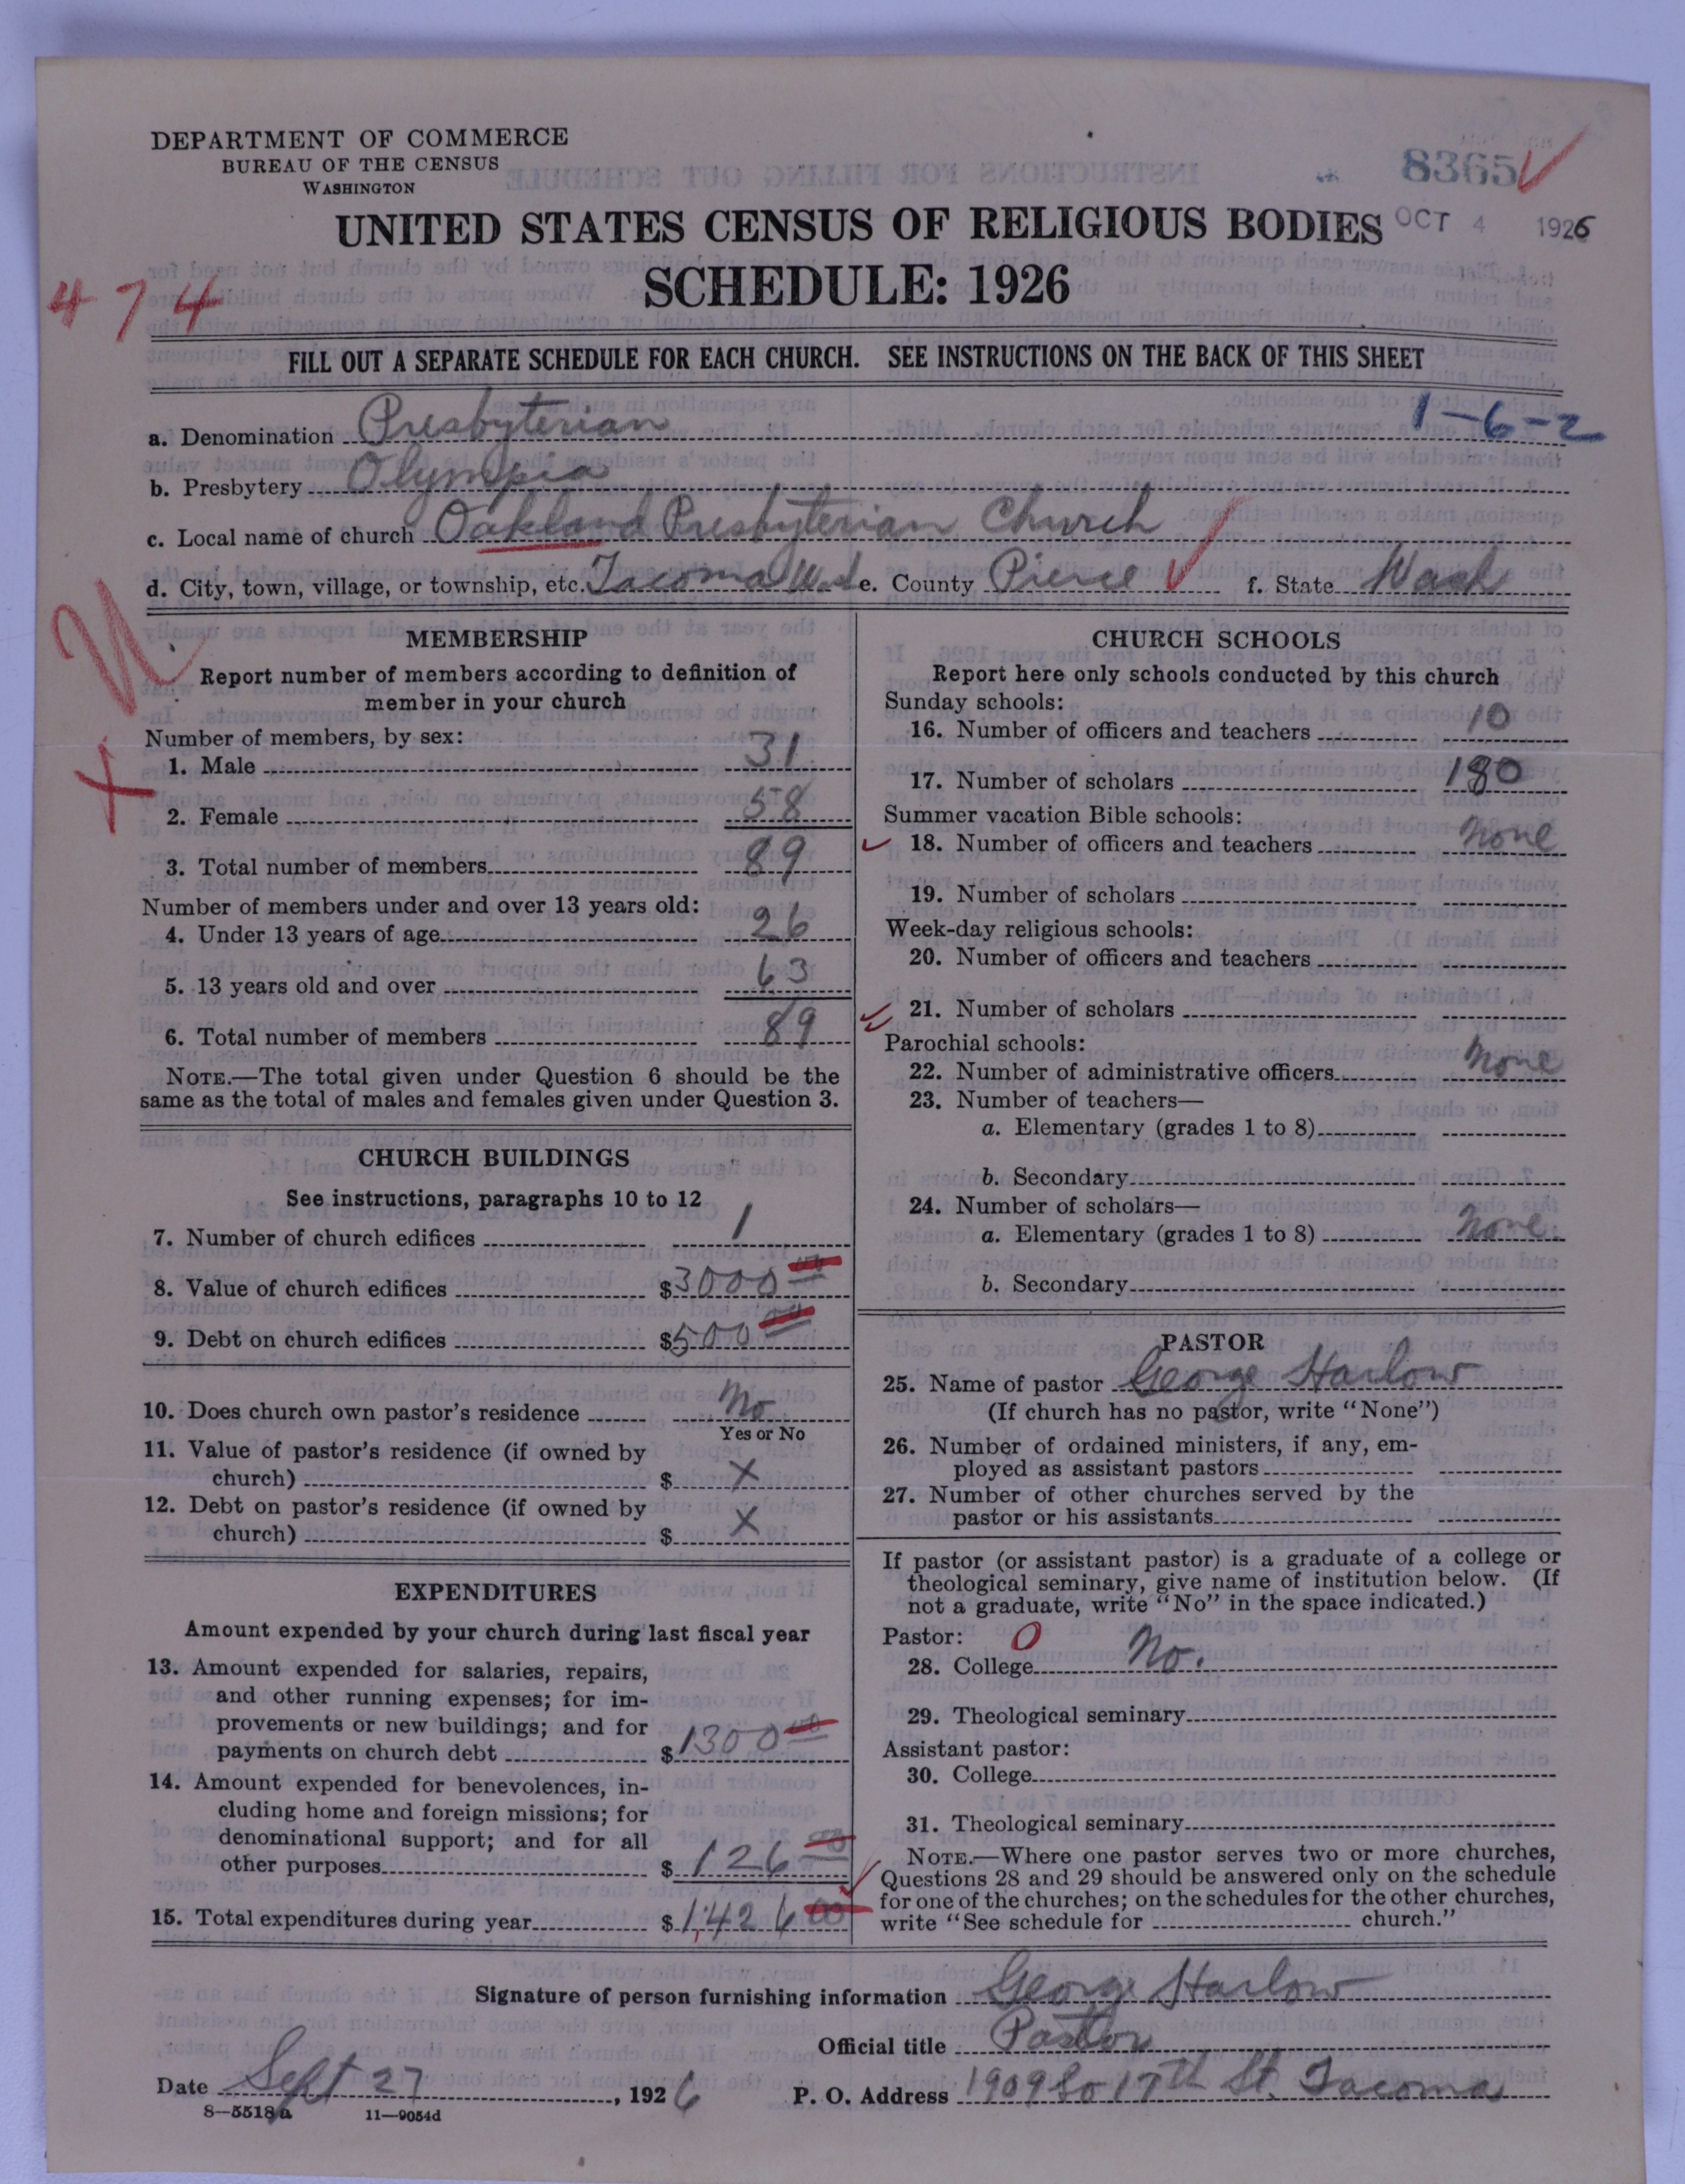 DEPARTMENT OF COMMERCE
BUREAU OF THE CENSUS
WASHINGTON
8365
UNITED STATES CENSUS OF RELIGIOUS BODIES
OCT 4 1926
SCHEDULE: 1926
474
FILL OUT A SEPARATE SCHEDULE FOR EACH CHURCH. SEE INSTRUCTIONS ON THE BACK OF THIS SHEET
1-6-2
a. Denomination Presbyterian
b. Presbytery Olympia
c. Local name of church Oakland Presbyterian Church
d. City, town, village, or township, etc. Tacoma Wash e. County Pierce f. State Wash
MEMBERSHIP
Report number of members according to definition of
member in your church
Number of members, by sex:
1. Male 31
2. Female 58
3. Total number of members 89
Number of members under and over 13 years old:
4. Under 13 years of age 26
5. 13 years old and over 63
6. Total number of members 89
NOTE.—The total given under Question 6 should be the
same as the total of males and females given under Question 3.
CHURCH BUILDINGS
See instructions, paragraphs 10 to 12
7. Number of church edifices 1
8. Value of church edifices $3000 00
9. Debt on church edifices $500 00
10. Does church own pastor's residence No
Yes or No
11. Value of pastor's residence (if owned by
church) $ X
12. Debt on pastor's residence (if owned by
church) $ X
EXPENDITURES
Amount expended by your church during last fiscal year
13. Amount expended for salaries, repairs,
and other running expenses; for im-
provements or new buildings; and for
payments on church debt $1300 00
14. Amount expended for benevolences, in-
cluding home and foreign missions; for
denominational support; and for all
other purposes $126 00
15. Total expenditures during year $1,426 00
CHURCH SCHOOLS
Report here only schools conducted by this church
Sunday schools:
16. Number of officers and teachers 10
17. Number of scholars 180
Summer vacation Bible schools:
18. Number of officers and teachers None
19. Number of scholars
Week-day religious schools:
20. Number of officers and teachers
21. Number of scholars
Parochial schools:
22. Number of administrative officers None
23. Number of teachers—
a. Elementary (grades 1 to 8)
b. Secondary
24. Number of scholars—
a. Elementary (grades 1 to 8) None.
b. Secondary
PASTOR
25. Name of pastor George Harlow
(If church has no pastor, write "None")
26. Number of ordained ministers, if any, em-
ployed as assistant pastors
27. Number of other churches served by the
pastor or his assistants
If pastor (or assistant pastor) is a graduate of a college or
theological seminary, give name of institution below. (If
not a graduate, write "No" in the space indicated.)
Pastor: 0
28. College No.
29. Theological seminary
Assistant pastor:
30. College
31. Theological seminary
NOTE.—Where one pastor serves two or more churches,
Questions 28 and 29 should be answered only on the schedule
for one of the churches; on the schedules for the other churches,
write "See schedule for church."
Signature of person furnishing information George Harlow
Official title Pastor
Date Sept 27, 1926 P. O. Address 1909 So 17th St. Tacoma
8—5518a 11—9054d